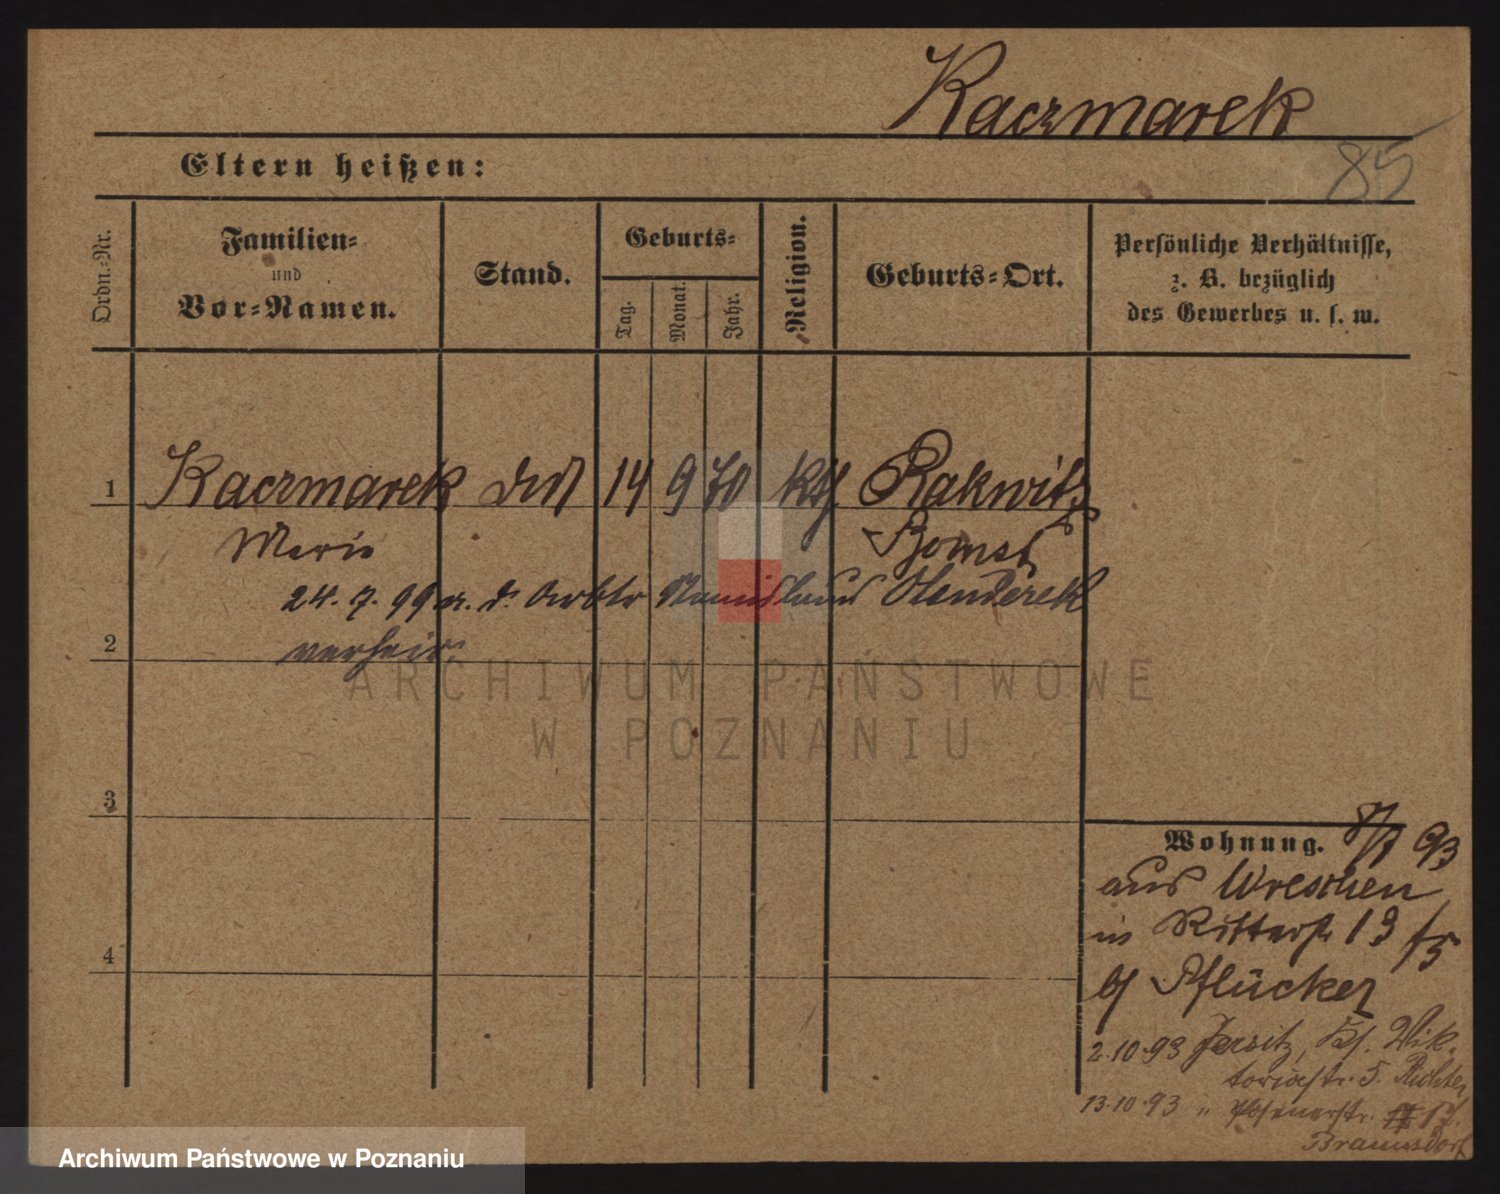 Kaczmarek
85
Eltern heißen:
Ordn.-Nr.
Familien-
und
Vor-Namen.
Stand.
Geburts-
Tag.
Monat.
Jahr.
Religion.
Geburts-Ort.
Persönliche Verhältnisse,
z. B. bezüglich
des Gewerbes u. s. w.
1 Kaczmarek 14 9 70 kth Rakwitz
Marie Bomst
24. 7. 99 m. d. Arbtr Stanislaus Olenderek
2 verheir.
ARCHIWUM PAŃSTWOWE
W POZNANIU
3
4
Wohnung. 8/7 93
aus Wreschen
in Ritterstr 13
b/ Pflücker
2.10.93 Jersitz, Wik-
toriastr. 5. Richter
13.10.93 " Posenerstr. 17.
Braunsdorf
Archiwum Państwowe w Poznaniu